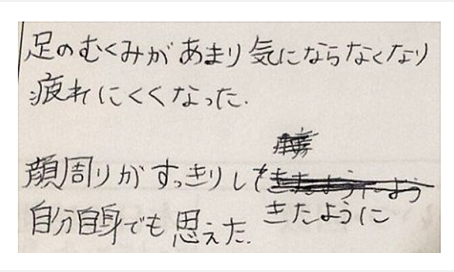 足のむくみがあまり気にならなくなり
疲れにくくなった.
顔周りがすっきりしてきたように
自分自身でも思えた.